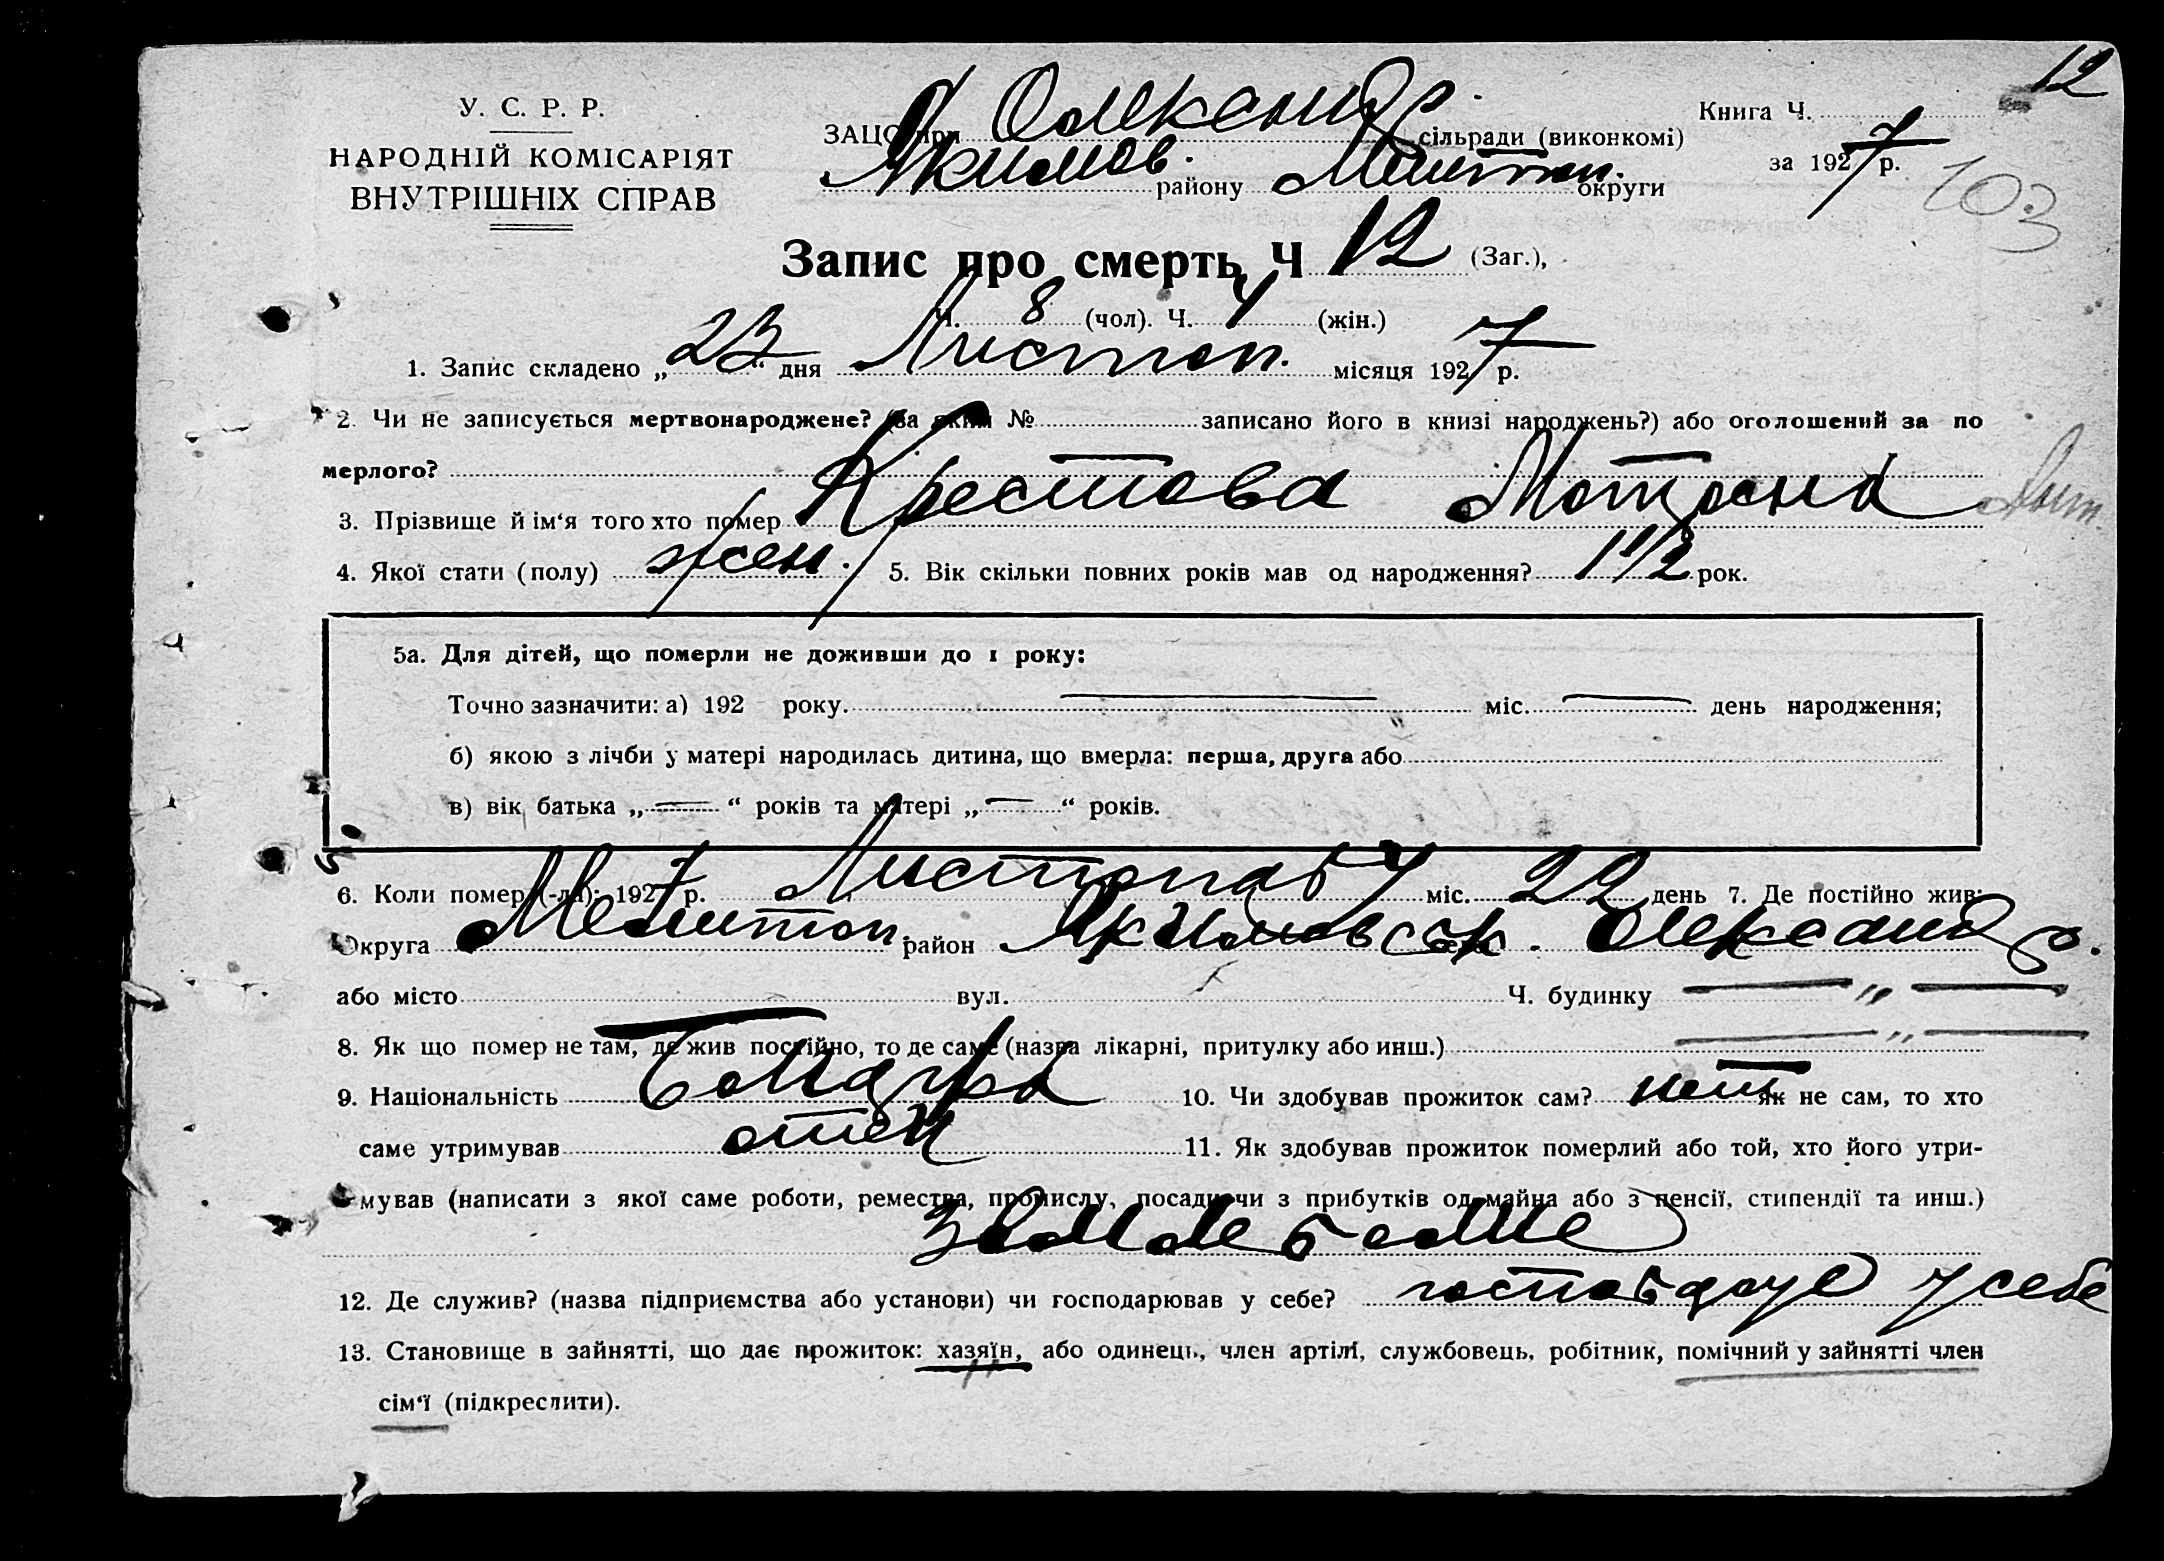 12
У. С. Р. Р.
НАРОДНІЙ КОМІСАРІЯТ
ВНУТРІШНІХ СПРАВ
ЗАЦС при Олександр. сільради (виконкомі)
Якимов. району Мелитоп. округи
Книга Ч.
за 1927 р.
103
Запис про смерть Ч 12 (Заг.),
Ч. 8 (чол). Ч. 4 (жін.)
1. Запис складено „23“ дня Листоп. місяця 1927 р.
2. Чи не записується мертвонароджене? (За яким № записано його в книзі народжень?) або оголошений за по
мерлого?
3. Прізвище й ім‘я того хто помер Крестова Мотрона
4. Якої стати (полу) жен. 5. Вік скільки повних років мав од народження? 1 1/2 рок.
5а. Для дітей, що померли не доживши до 1 року:
Точно зазначити: а) 192 року. — міс. — день народження;
б) якою з лічби у матері народилась дитина, що вмерла: перша, друга або
в) вік батька „—“ років та матері „—“ років.
6. Коли помер (-ла): 1927 р. Листопад міс. 22 день 7. Де постійно жив:
Округа Мелитоп. район Якимовськ. Олександр.
або місто вул. Ч. будинку — „ —
8. Як що помер не там, де жив постійно, то де саме (назва лікарні, притулку або инш.) — „ —
9. Національність Болгарка 10. Чи здобував прожиток сам? нет Як не сам, то хто
саме утримував отец 11. Як здобував прожиток померлий або той, хто його утри-
мував (написати з якої саме роботи, ремества, промислу, посади чи з прибутків од майна або з пенсії, стипендії та инш.)
12. Де служив? (назва підприємства або установи) чи господарював у себе? господарує у себе
13. Становище в зайнятті, що дає прожиток: хазяїн, або одинець, член артілі, службовець, робітник, помічний у зайнятті член
сім‘ї (підкреслити).